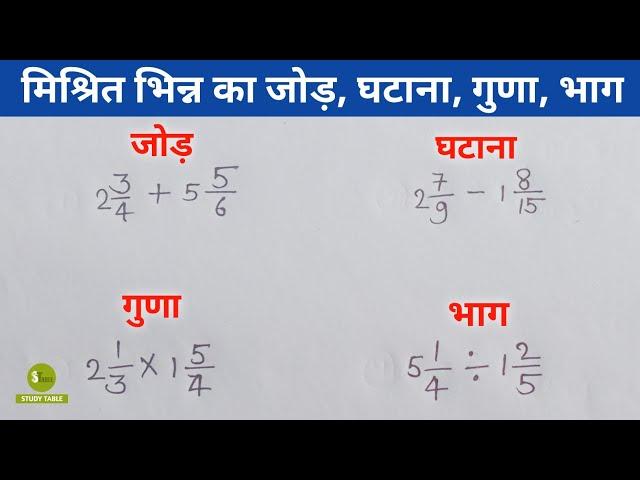 मिश्रित भिन्न का जोड़, घटाना, गुणा, भाग
जोड़
2 3/4 + 5 5/6
घटाना
2 7/9 - 1 8/15
गुणा
2 1/3 × 1 5/4
भाग
5 1/4 ÷ 1 2/5
STUDY TABLE